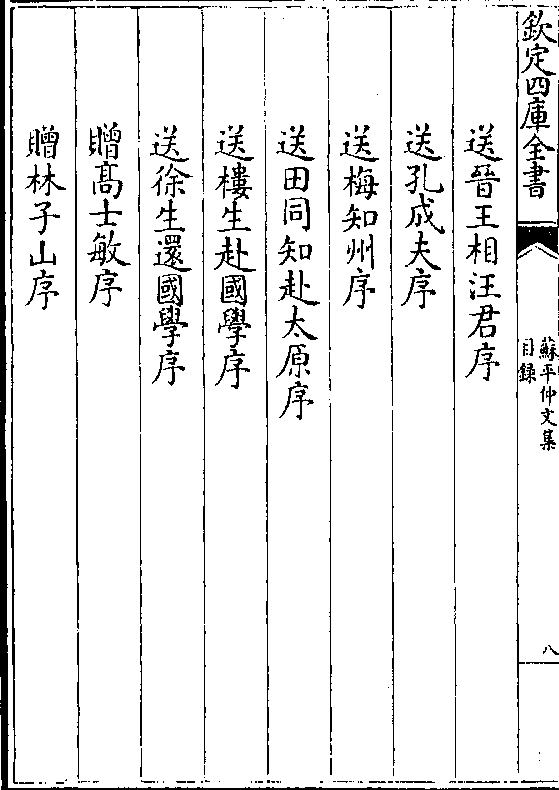 欽定四庫全書
蘇平仲文集
目錄
八
送晉王相汪君序
送孔成夫序
送梅知州序
送田同知赴太原序
送樓生赴國學序
送徐生還國學序
贈髙士敏序
贈林子山序